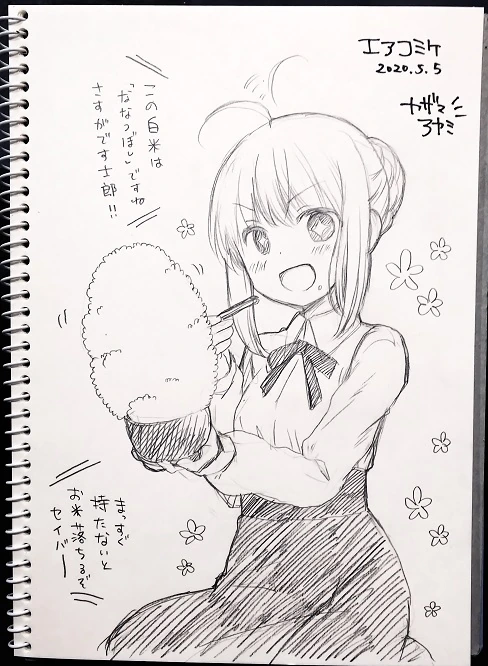 エアコミケ
2020.5.5
カザマ
アヤミ
この白米は
「ななつぼし」ですね
さすがです士郎!!
まっすぐ
持たないと
お米落ちるぞ
セイバー